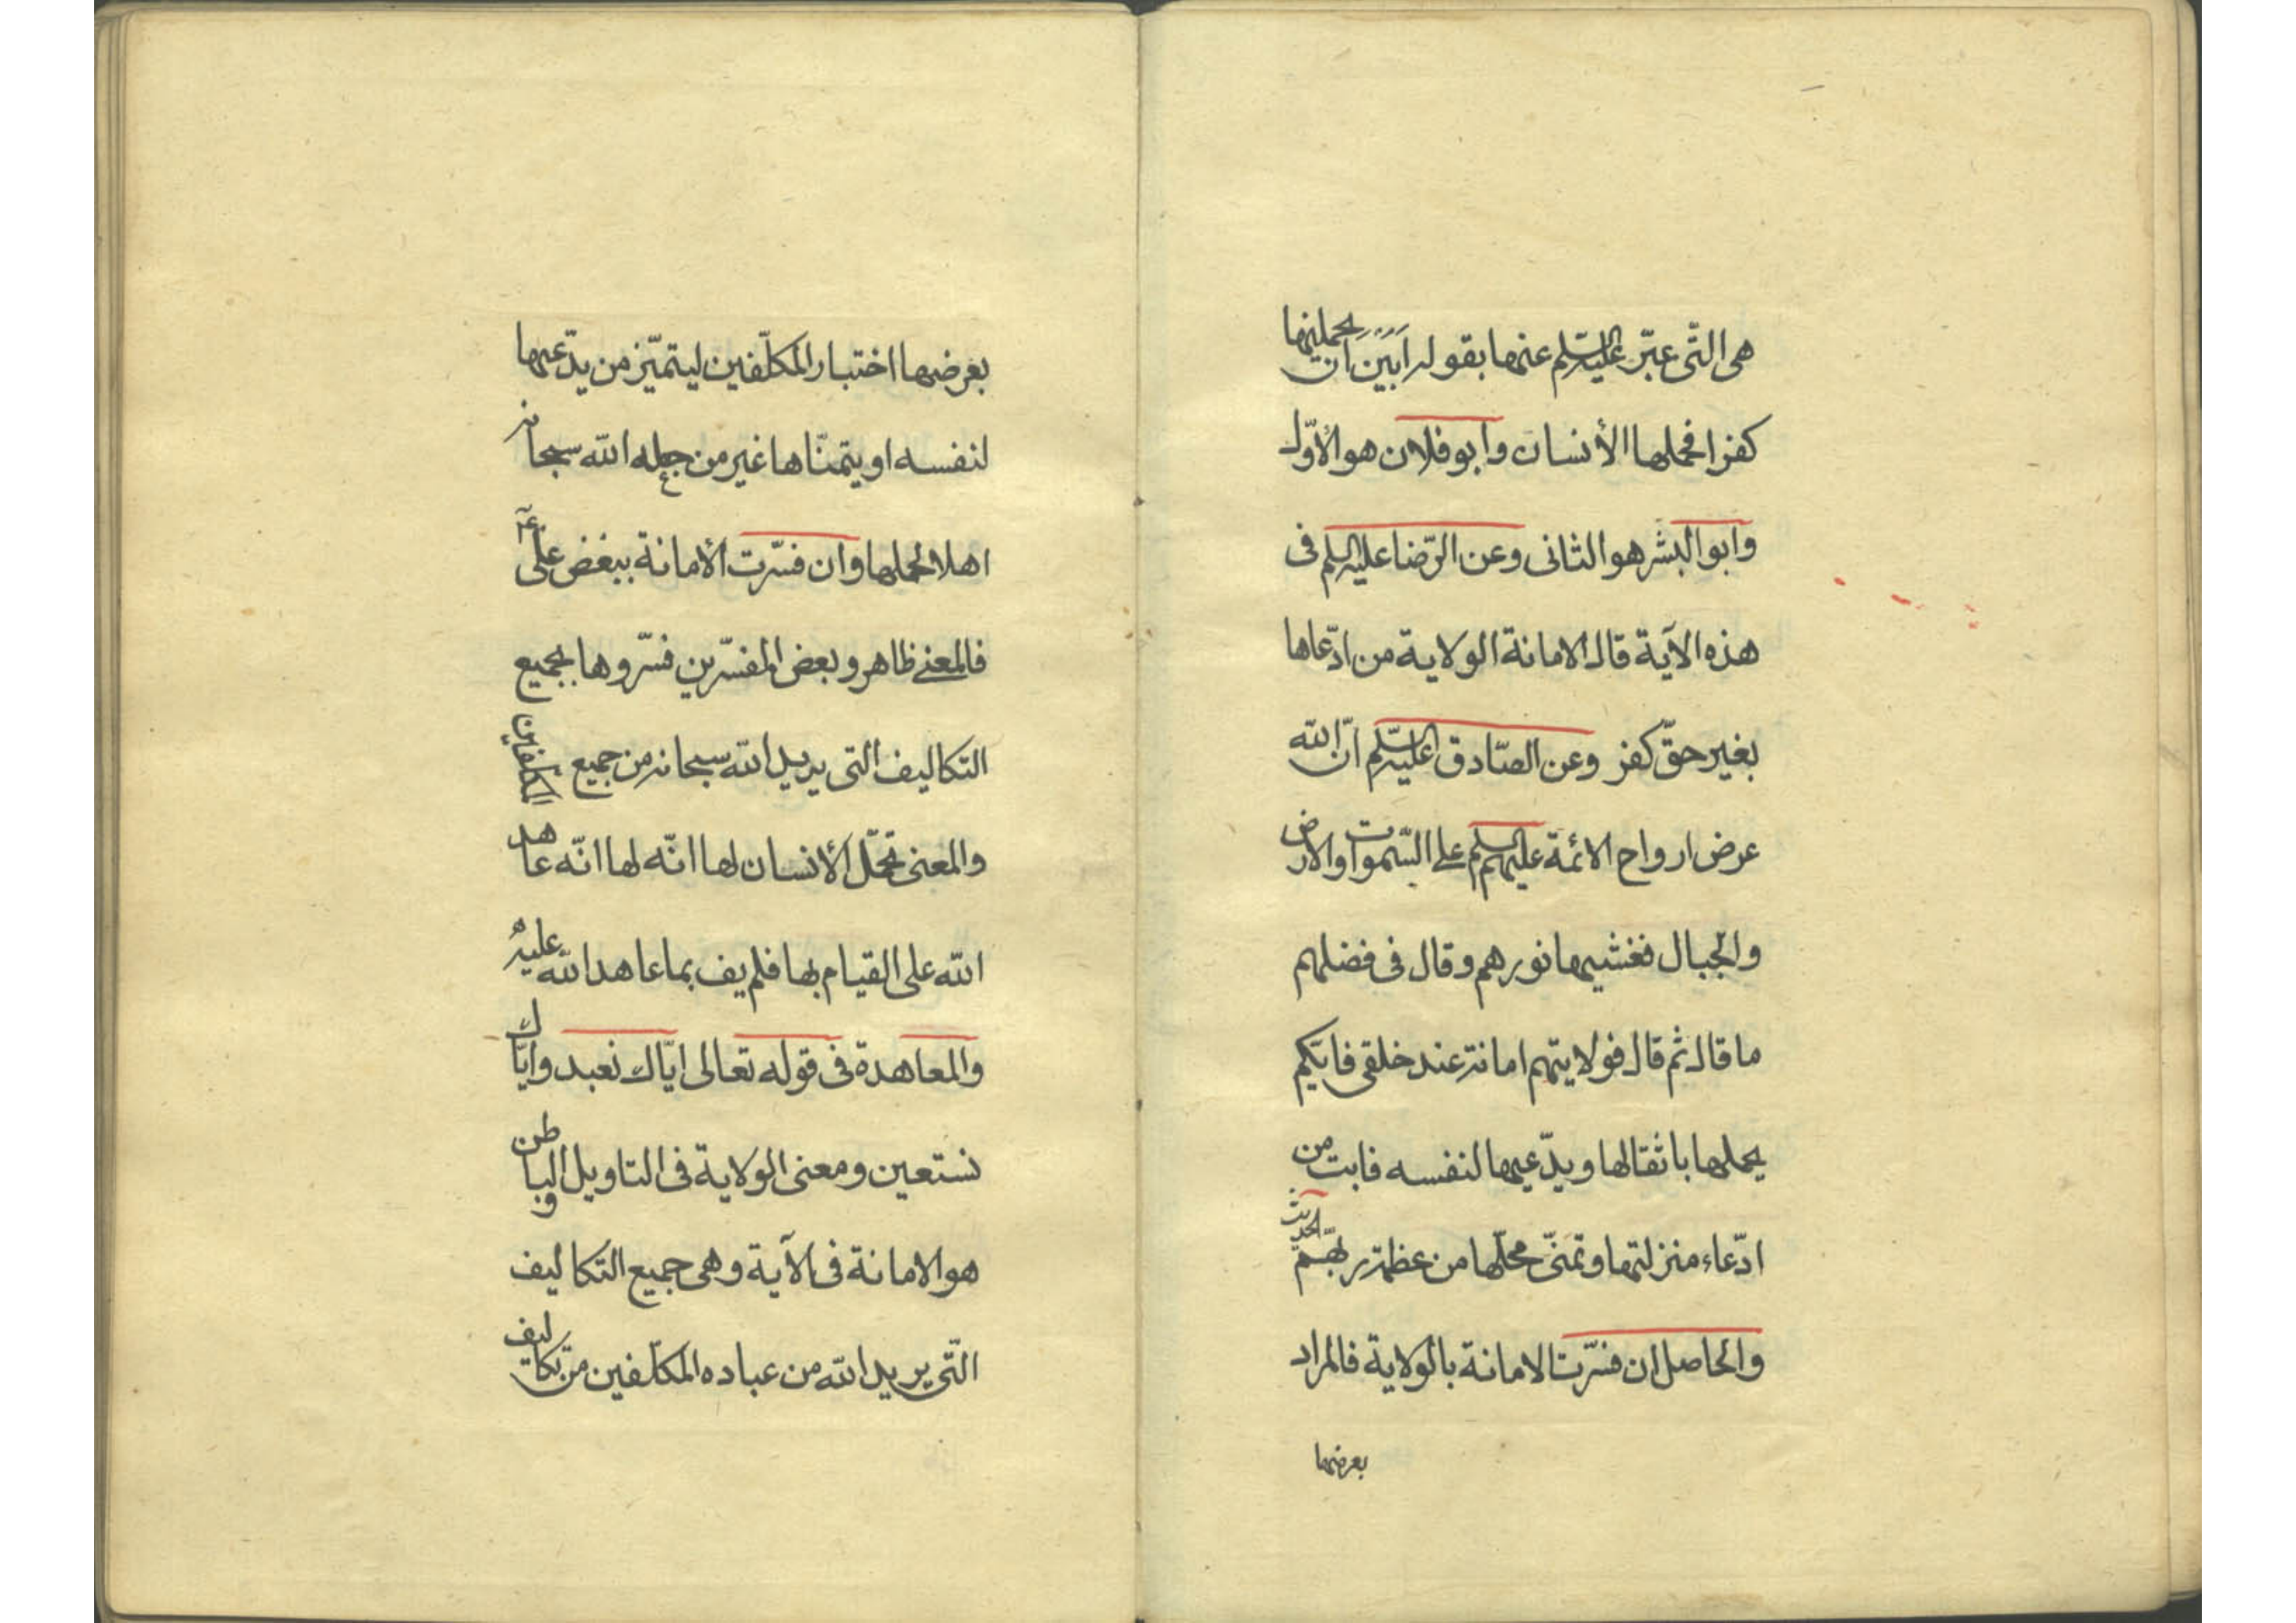 هى التّى عبّر عليه السّلم عنها بقوله اَبَيْنَ اَن يحملنها
كفرا فحملها الأنسان وابو فلان هو الأوّل
وابو البشر هو الثانى وعن الرّضا عليه السلم فى
هذه الآية قال الامانة الولاية من ادّعاها
بغير حقّ كفر وعن الصّادق عليه السّلم انّ الله
عرض ارواح الائمة عليهم السلم على السّموات والارض
والجبال فغشيها نورهم وقال فى فضلهم
ما قال ثم قال فولايتهم امانة عند خلقى فايّكم
يحملها باثقالها ويدّعيها لنفسه فابت من
ادّعاء منزلتها وتمنّى محلّها من عظمة ربّهم الحديث
والحاصل ان فسّرت الامانة بالولاية فالمراد
بعرضها
بعرضها اختبار المكلّفين ليتميّز من يدّعيها
لنفسه او يتمنّاها غير من جعله الله سبحانه
اهلا لحملها وان فسّرت الأمانة ببغض علىّ ع
فالمعنى ظاهر وبعض المفسّرين فسّروها بجميع
التكاليف التى يريد الله سبحانه من جميع المكلّفين
والمعنى تحمّل الأنسان لها انّه لها انّه عاهد
الله على القيام بها فلم يف بما عاهد الله عليه
والمعاهدة فى قوله تعالى ايّاك نعبد وايّاك
نستعين ومعنى الولاية فى التاويل الباطن و
هو الامانة فى الآية وهى جميع التكاليف
التّى يريد الله من عباده المكلّفين من تكاليف